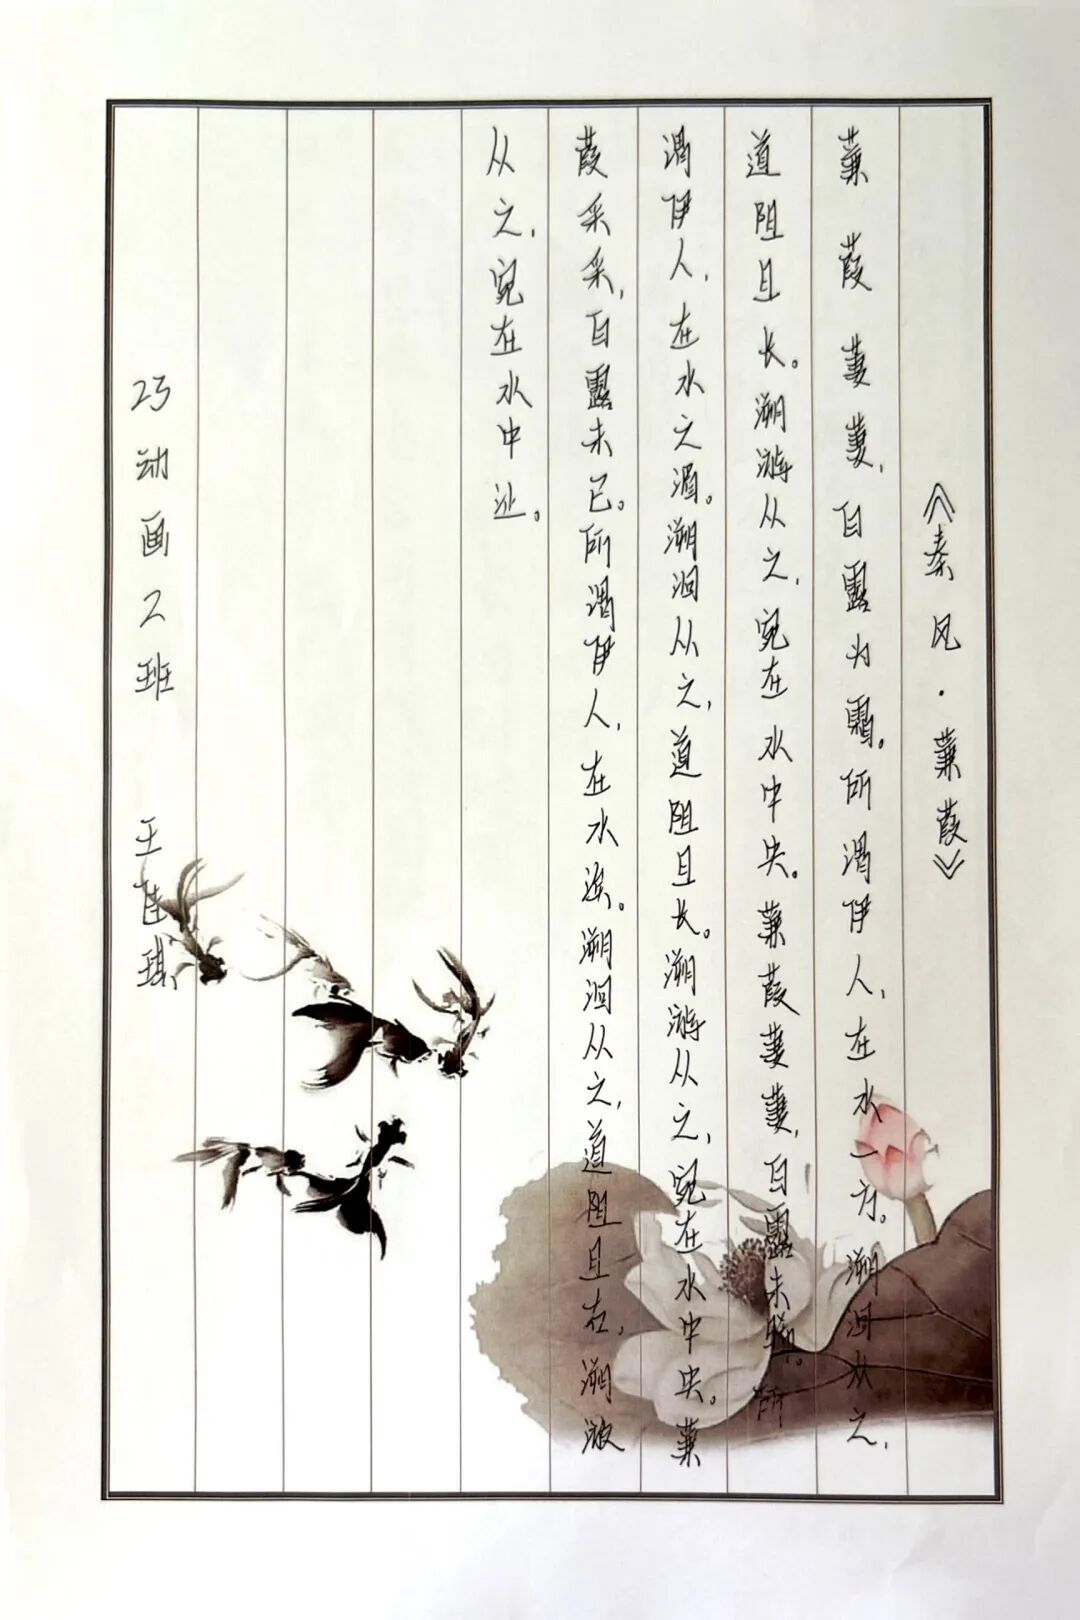 《秦风·蒹葭》
蒹葭萋萋，白露为霜。所谓伊人，在水一方。溯洄从之，
道阻且长。溯游从之，宛在水中央。蒹葭萋萋，白露未晞。所
谓伊人，在水之湄。溯洄从之，道阻且长。溯游从之，宛在水中央。蒹
葭采采，白露未已。所谓伊人，在水涘。溯洄从之，道阻且右，溯游
从之，宛在水中沚。
23动画2班 王佳琪